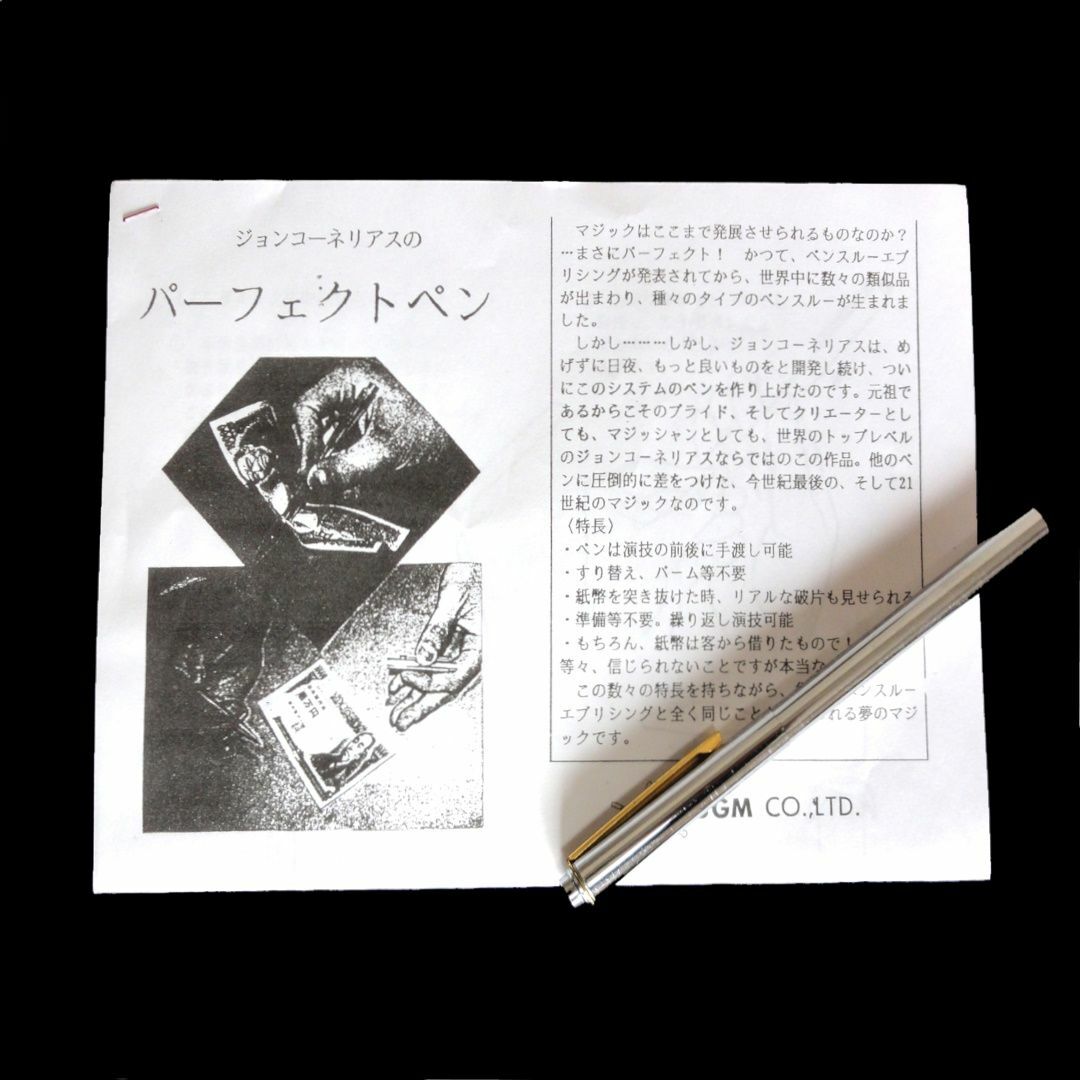 ジョンコーネリアスの
パーフェクトペン
マジックはここまで発展させられるものなのか？
…まさにパーフェクト！　かつて、ペンスルーエブ
リシングが発表されてから、世界中に数々の類似品
が出まわり、種々のタイプのペンスルーが生まれま
した。
しかし………しかし、ジョンコーネリアスは、め
げずに日夜、もっと良いものをと開発し続け、つい
にこのシステムのペンを作り上げたのです。元祖で
あるからこそのプライド、そしてクリエーターとし
ても、マジッシャンとしても、世界のトップレベル
のジョンコーネリアスならではのこの作品。他のペ
ンに圧倒的に差をつけた、今世紀最後の、そして21
世紀のマジックなのです。
〈特長〉
・ペンは演技の前後に手渡し可能
・すり替え、パーム等不要
・紙幣を突き抜けた時、リアルな破片も見せられる
・準備等不要。繰り返し演技可能
・もちろん、紙幣は客から借りたもので！
等々、信じられないことですが本当な
この数々の特長を持ちながら、ペンスルー
エブリシングと全く同じこと れる夢のマジ
ックです。
UGM CO.,LTD.